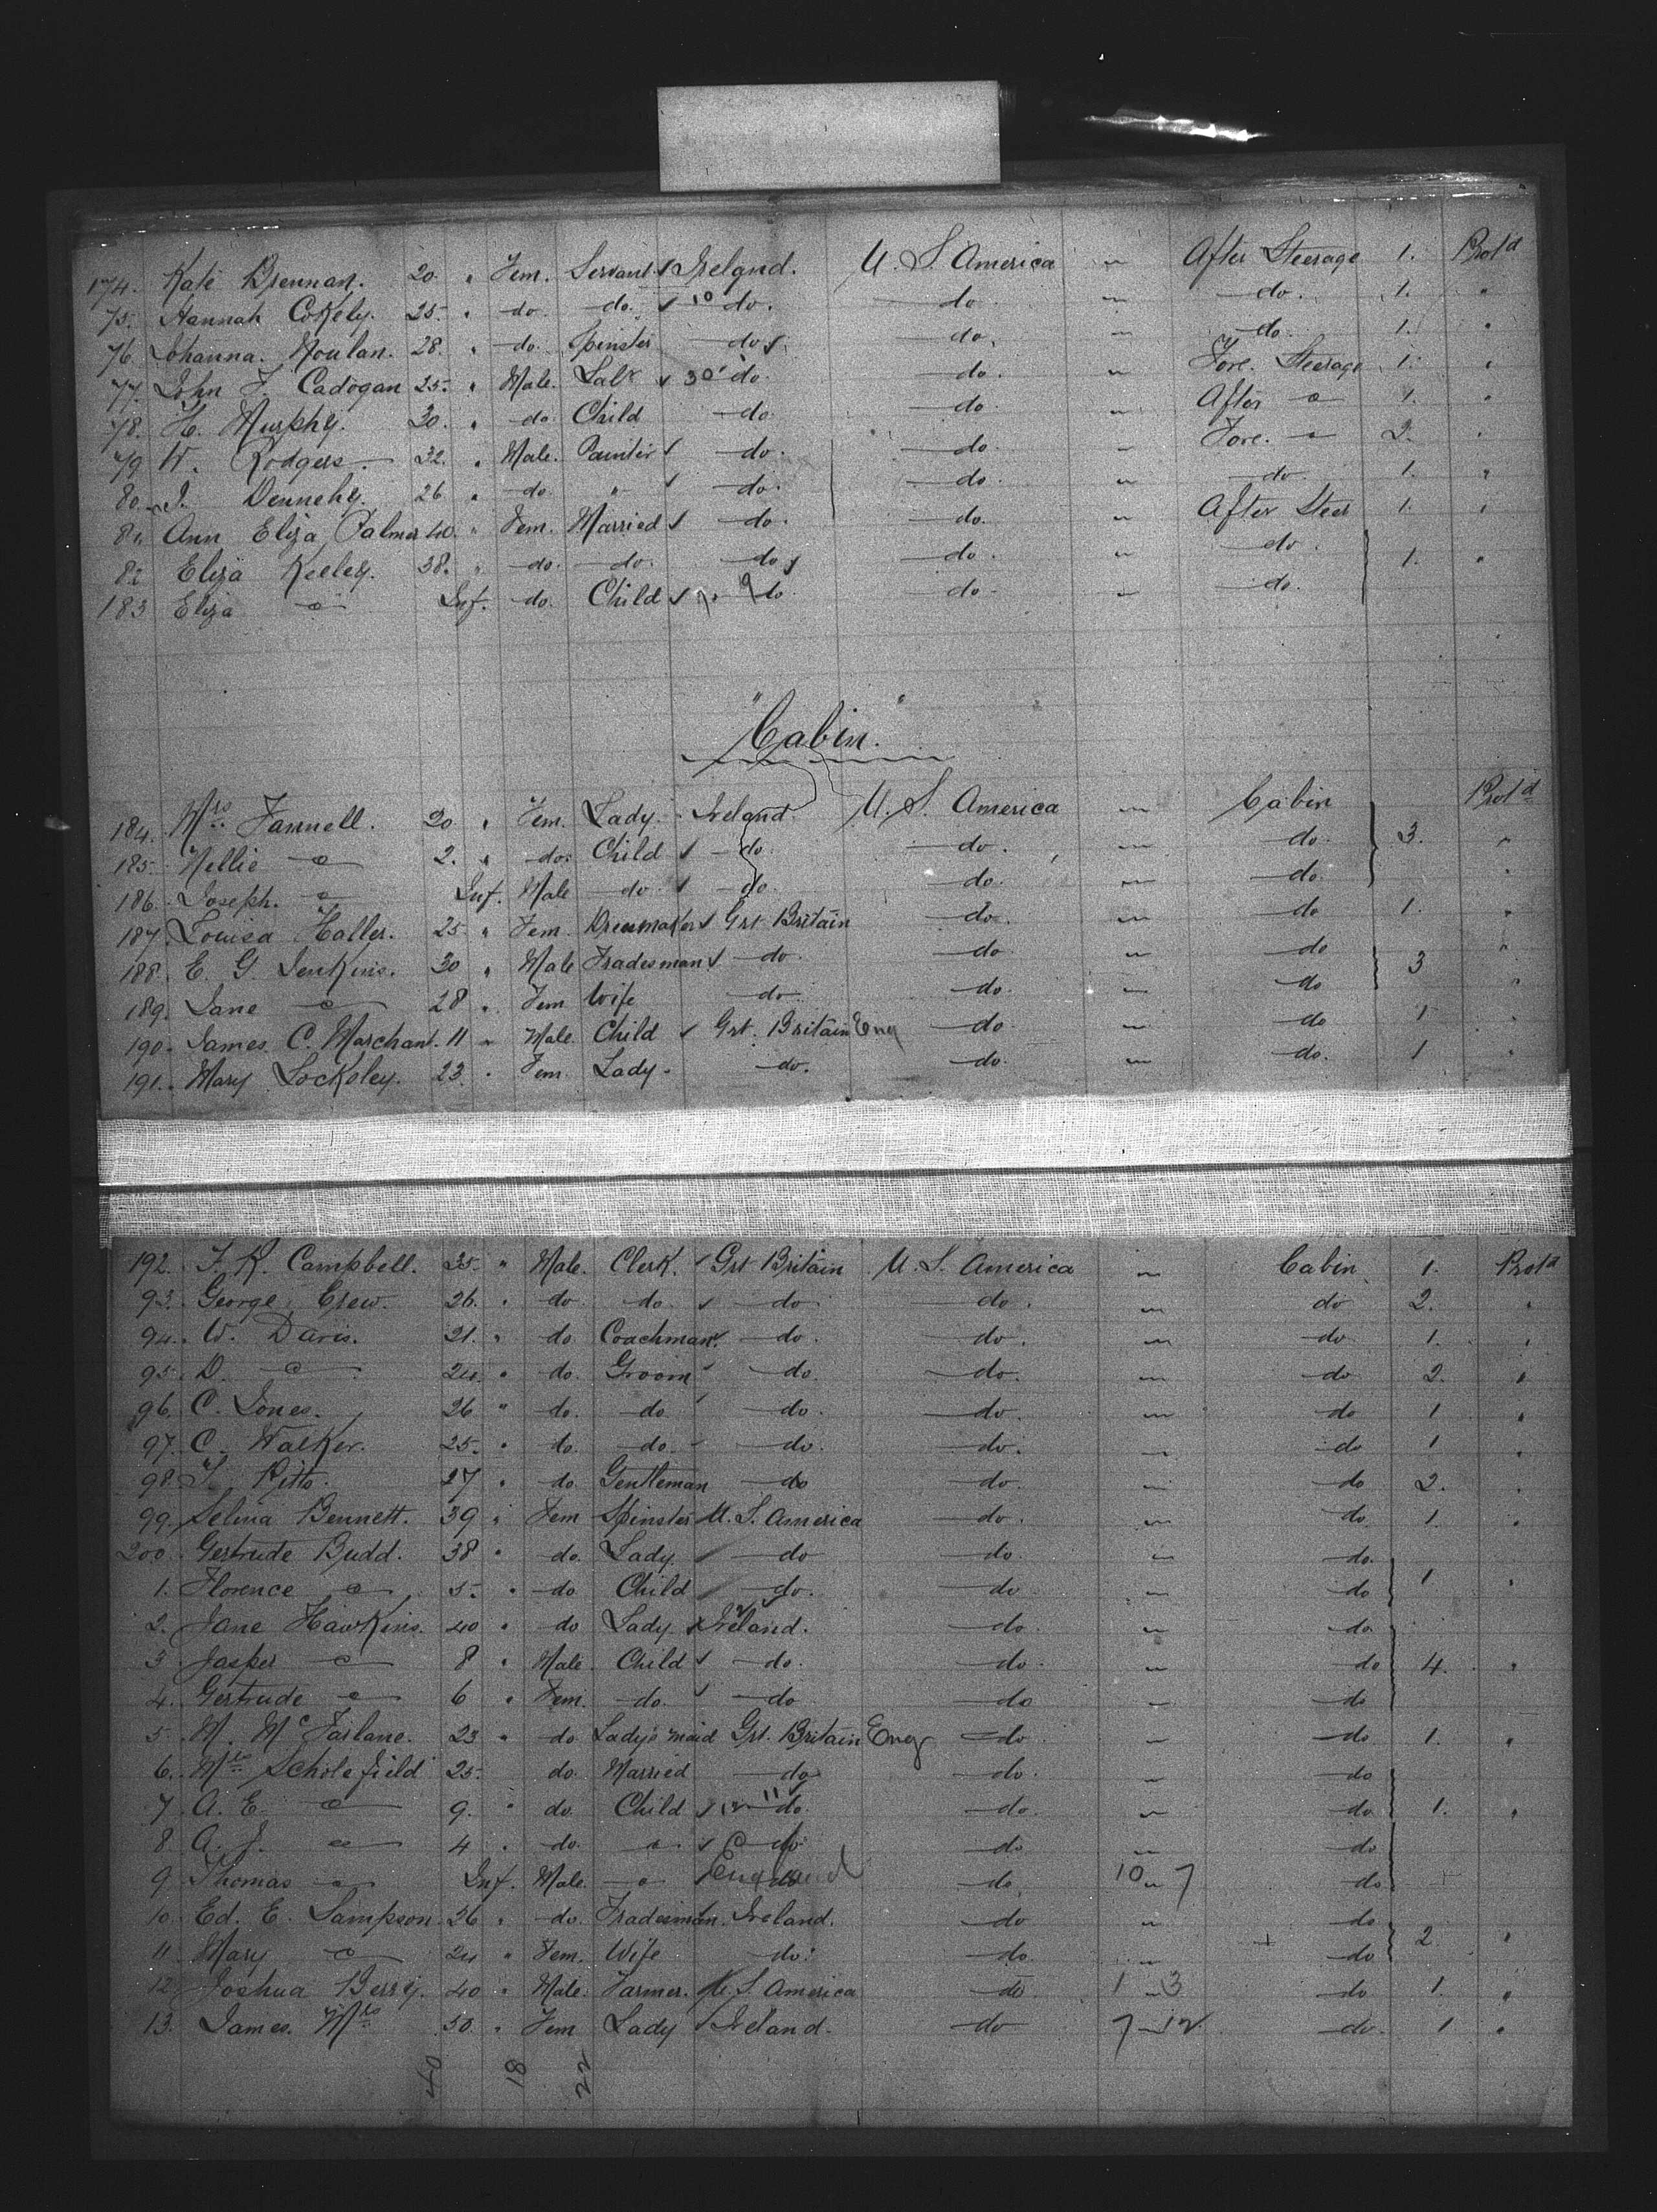 174. Kate Brennan. 20 " Fem. Servant Ireland. U. S. America " After Steerage 1. Prot'd
75. Hannah Cokely. 25. " do. do. 10 do. do. " do. 1. "
76. Johanna. Houlan. 28. " do. Spinster do. do. " do. 1. "
77. John F. Cadogan 25. " Male. Labr 30 do. do. " Fore. Steerage 1. "
78. H. Murphy. 30. " do. Child do. do. " After " 1. "
79 W. Rodgers. 32. " Male. Painter do. do. " Fore. " 2. "
80. J. Dennehy. 26 " do. " do. do. " do. 1. "
81. Ann Eliza Palmer 40. " Fem. Married do. do. " After Steer 1. "
82 Eliza Keeley. 38. " do. do. do. do. " do. 1. "
183 Eliza " Inf. do. Child do. do. " do.
"Cabin."
184. Mrs Fannell. 20 " Fem. Lady. Ireland. U. S. America " Cabin Prot'd
185. Nellie " 2. " do. Child do. do. " do. 3. "
186. Joseph. " Inf. Male do. do. do. " do. "
187. Louisa Haller. 25. " Fem. Dressmaker Grt Britain do. " do 1. "
188. E. G. Jenkins. 30 " Male Tradesman do. do. " do 3 "
189. Jane " 28 " Fem Wife do. do. " do "
190. James C. Marchant. 11 " Male. Child Grt. Britain Eng do. " do 1 "
191. Mary Lockeley. 23. " Fem. Lady. do. do. " do. 1 "
192. F. R. Campbell. 35. " Male. Clerk. Grt Britain U. S. America " Cabin 1. Prot'd
93. George Crew. 26. " do. do. do. do. " do 2. "
94. W. Davis. 21. " do. Coachman. do. do. " do 1. "
95. D. " 24. " do. Groom do. do. " do 2. "
96. C. Jones. 26 " do. do do. do. " do 1 "
97. C. Walker. 25. " do. do. do. do. " do 1 "
98. T. Pitts. 27 " do. Gentleman do do. " do 2. "
99. Selina Bennett. 39 " Fem Spinster U. S. America do. " do 1. "
200. Gertrude Budd. 38 " do. Lady. do do. " do.
1. Florence " 5. " do Child do. do " do 1 "
2. Jane Hawkins. 40 " do Lady. Ireland. do. " do.
3 Jasper " 8 " Male. Child do. do. " do 4. "
4. Gertrude " 6 " Fem. do. do do " do
5. M. McFarlane. 23 " do Lady's maid Grt. Britain Eng do " do 1. "
6. Mrs Scholefield 25. do. Married do do. " do
7 A. E. " 9. " do. Child 11 do. do. " do 1. "
8. A. J. " 4 " do. " do. do " do
9 Thomas " Inf. Male. " England do 10 7 do
10. Ed. E. Sampson. 26 " do. Tradesman. Ireland. do " do
11 Mary " 24 " Fem. Wife do. do. " do 2. "
12 Joshua Berry. 40 " Male. Farmer. U. S. America do 1 3 do 1. "
13. James. Mrs 50. " Fem Lady Ireland. do 7 12 do. 1 "
40 18 22